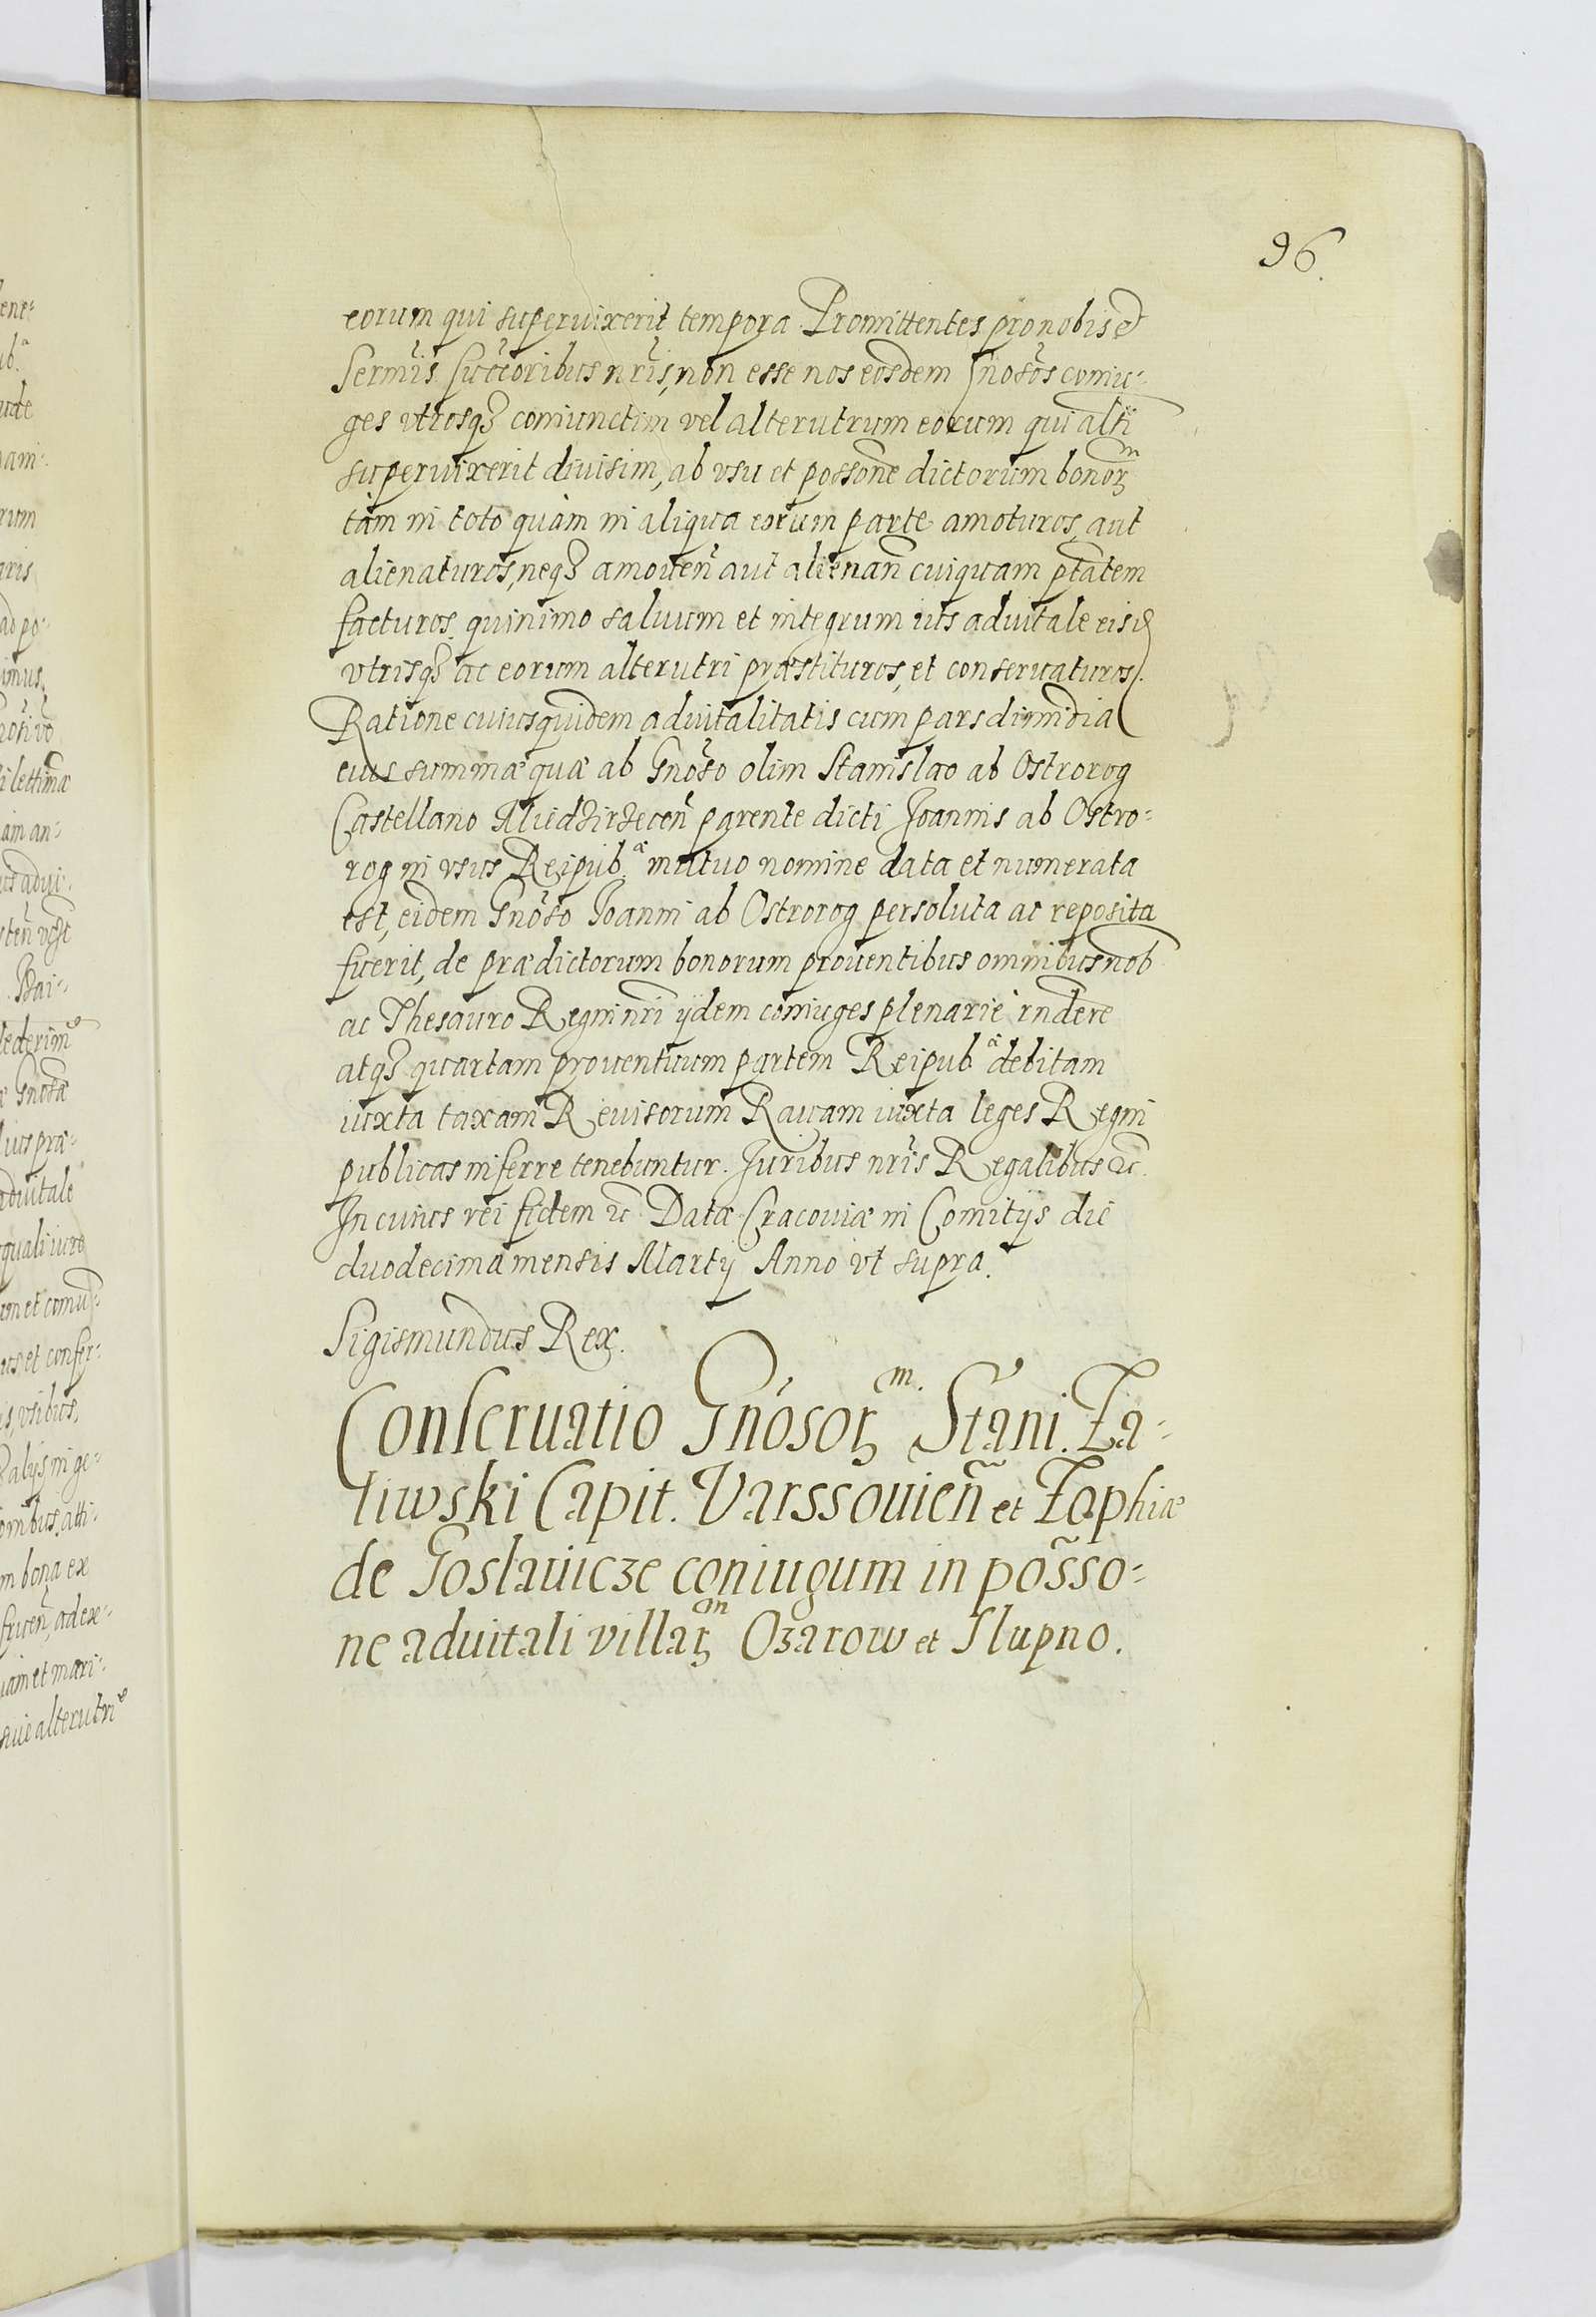 96.
eorum qui superuixerit tempora. Promittentes pro nobis et
Sermis Succroribus nris, non esse nos eosdem Gnosos coniu-
ges vtrosq3 coniunctim vel alterutrum eorum qui alti
superuixerit diuisim, ab vsu et possone dictorum bonorm
tam in toto quàm in aliqua eorum parte amoturos, aut
alienaturos, neq3 amouen aut alienan cuiquam ptatem
facturos. quinimo saluum et integrum ius aduitale eisd
vtrisq3 ac eorum alterutri præstituros, et conseruaturos.
Ratione cuiusquidem aduitalitatis cum pars dimidia
eius summæ quæ ab Gnoso olim Stanislao ab Ostrorog
Castellano Miedzirzecen parente dicti Joannis ab Ostro-
rog in vsus Reipub.æ mutuo nomine data et numerata
est, eidem Gnoso Joanni ab Ostrorog persoluta ac reposita
fuerit, de prædictorum bonorum prouentibus omnibus nob
ac Thesauro Regni nri ijdem coniuges plenariè rndere
atq3 quartam prouentuum partem Reipub.æ debitam
iuxta taxam Reuisorum Rauam iuxta leges Regni
publicas inferre tenebuntur. Juribus nris Regalibus etc.
In cuius rei fidem etc. Datæ Cracouiæ in Comitijs die
duodecima mensis Martij Anno vt supra.
Sigismundus Rex.
Conseruatio Gnosorm. Stani. Za-
liwski Capit. Varssouien et Zophiæ
de Goslawicze coniugum in posso-
ne aduitali villarm Ozarow et Slupno.